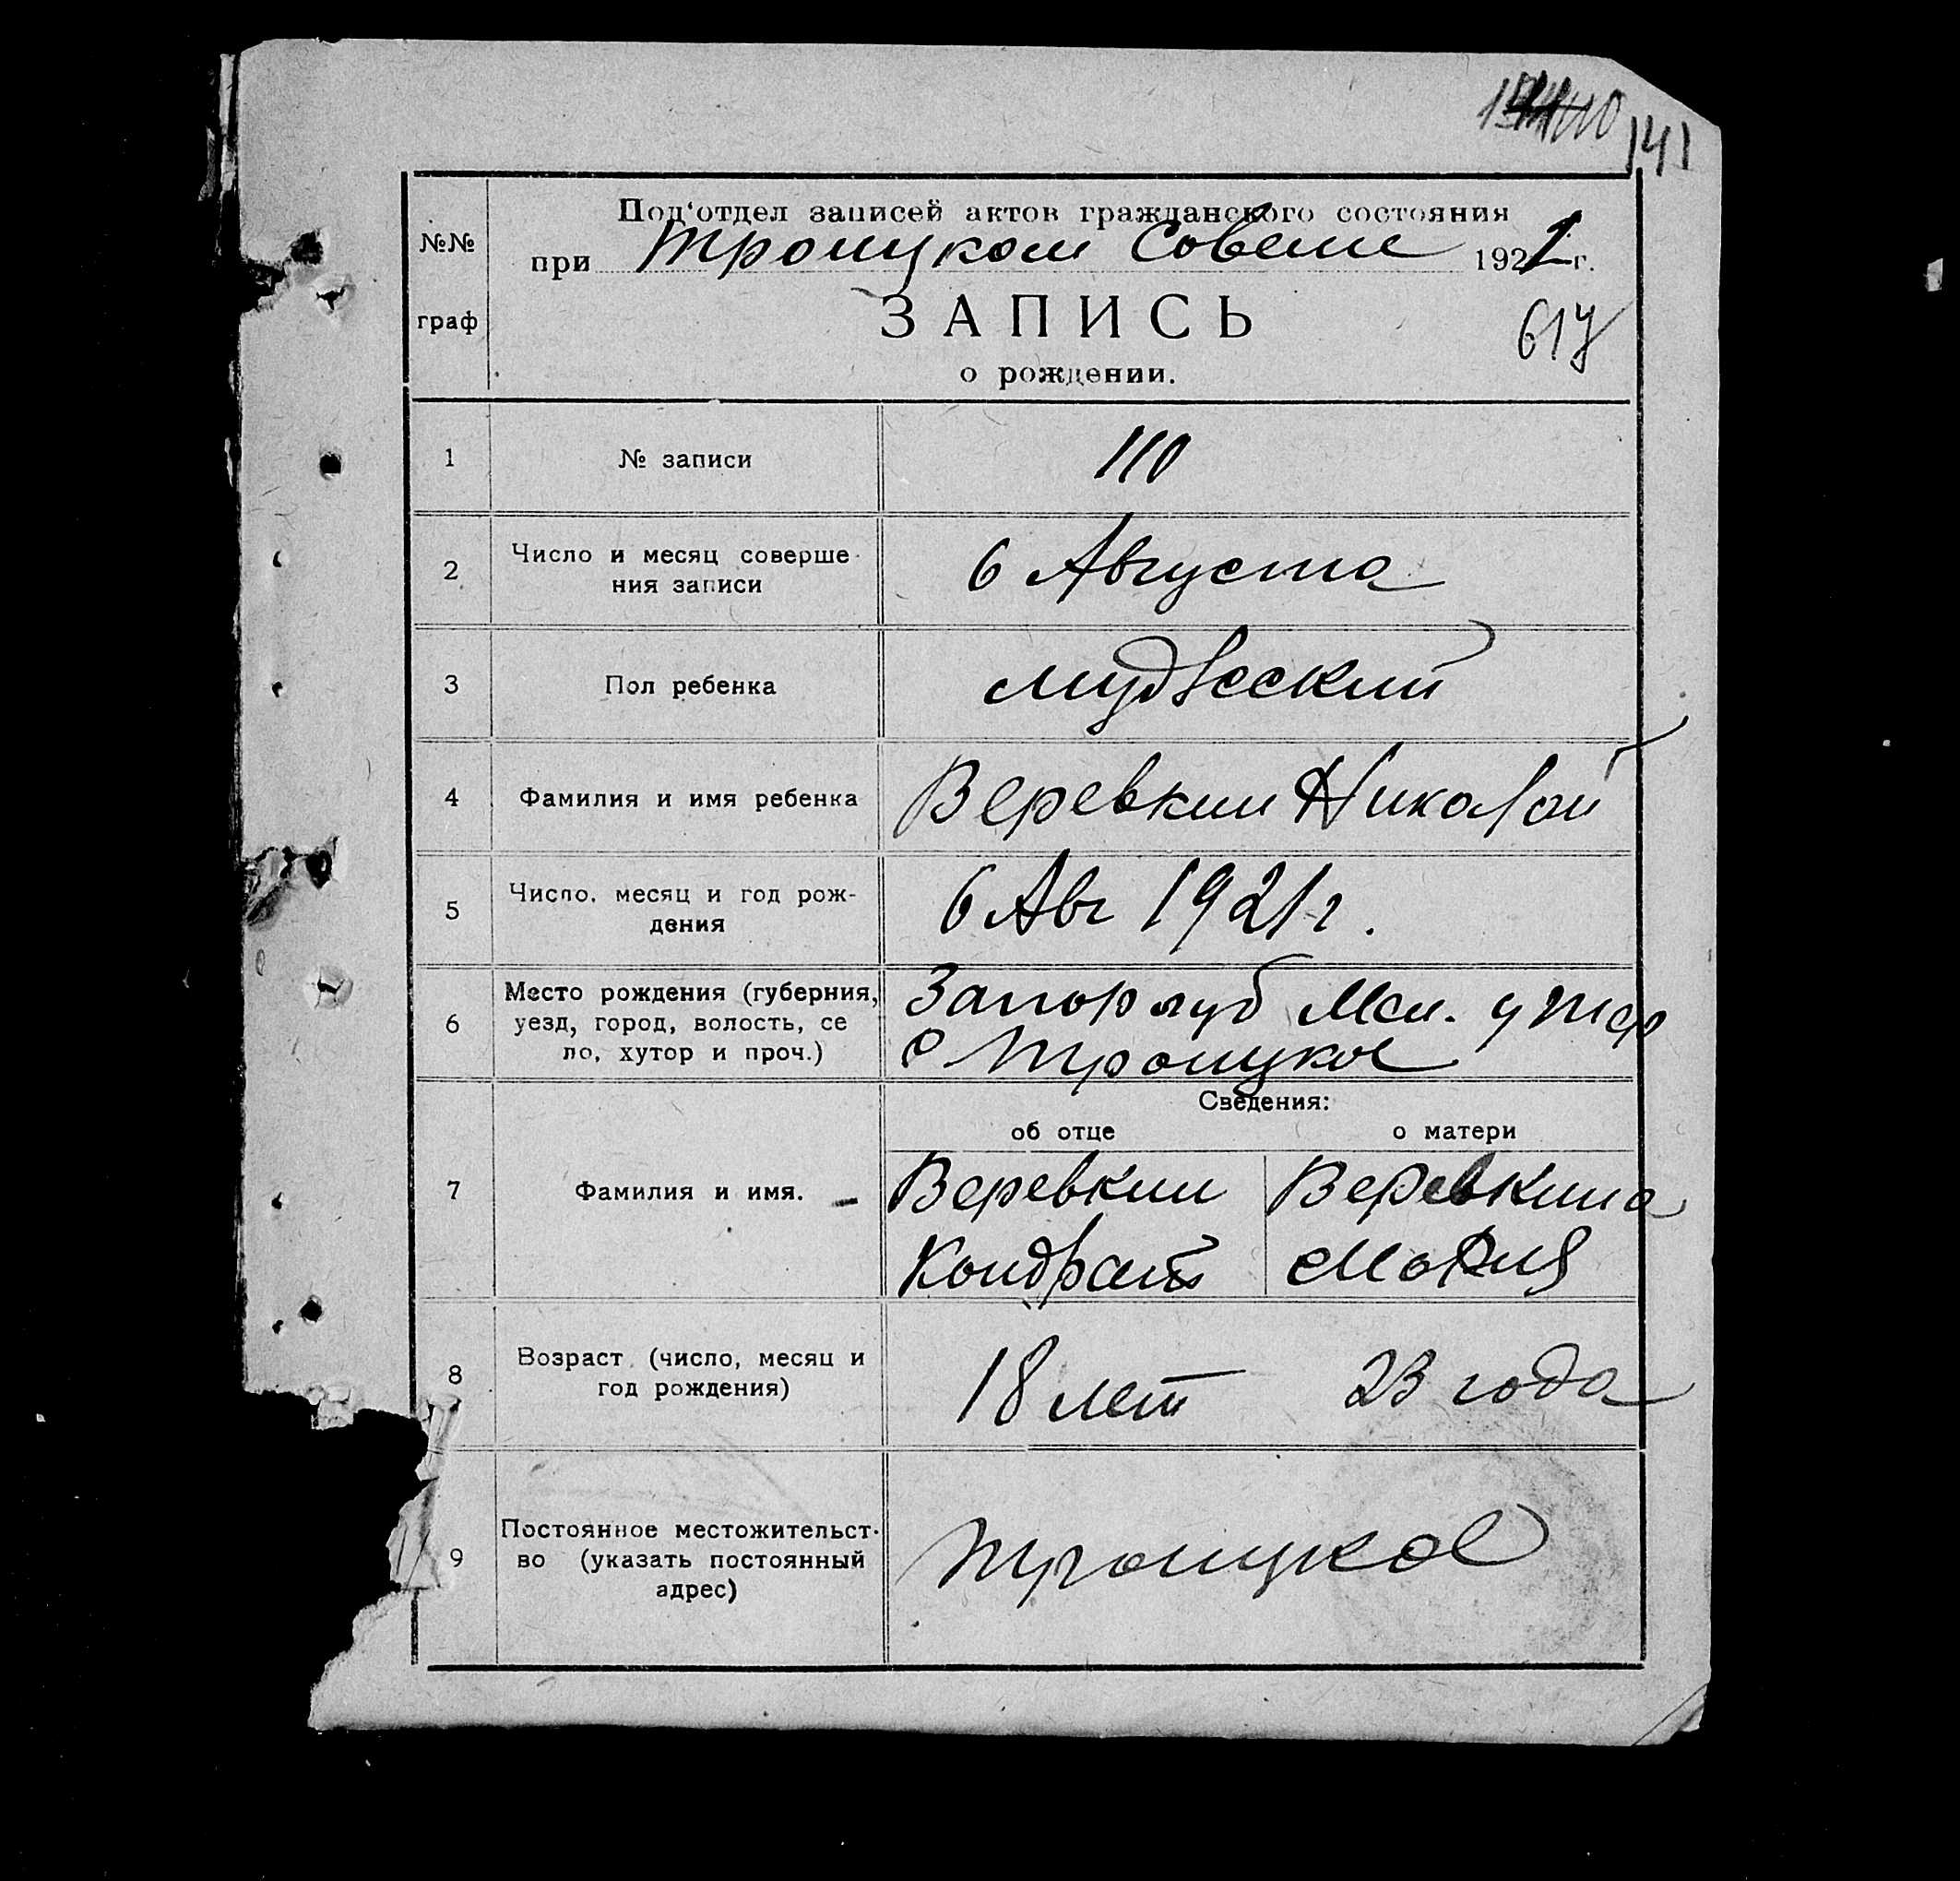 141
Под'отдел записей актов гражданского состояния
№№
при Троицком Совете 1921 г.
граф
ЗАПИСЬ
617
о рождении.
1 № записи 110
2 Число и месяц соверше-
ния записи
6 Августа
3 Пол ребенка мужеский
4 Фамилия и имя ребенка Веревкин Николай
5 Число, месяц и год рож-
дения
6 Авг 1921 г.
6 Место рождения (губерния,
уезд, город, волость, се
ло, хутор и проч.)
Запор губ Мел. у
с Троицкое
Сведения:
об отце о матери
7 Фамилия и имя.
Веревкин Веревкина
Кондрат Мария
8 Возраст (число, месяц и
год рождения)
18 лет 23 года
9 Постоянное местожительст-
во (указать постоянный
адрес)
Троицкое